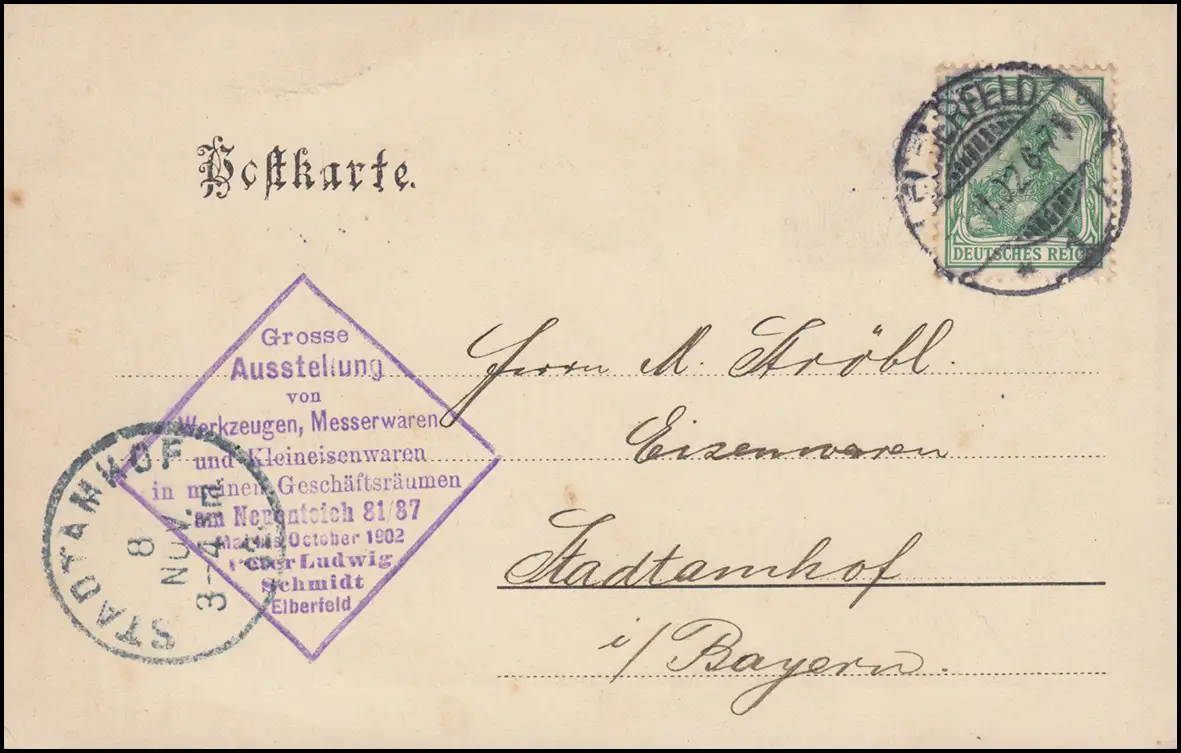 Postkarte.
ELBERFELD
DEUTSCHES REICH
Grosse
Ausstellung
von
Werkzeugen, Messerwaren
und Kleineisenwaren
in meinen Geschäftsräumen
am Neuenteich 81/87
Mai bis October 1902
Peter Ludwig
Schmidt
Elberfeld
STADTAMHOF
8
NOV.
3-4 Nm.
Herrn M. Ströbl.
Eisenwaren
Stadtamhof
i/ Bayern.